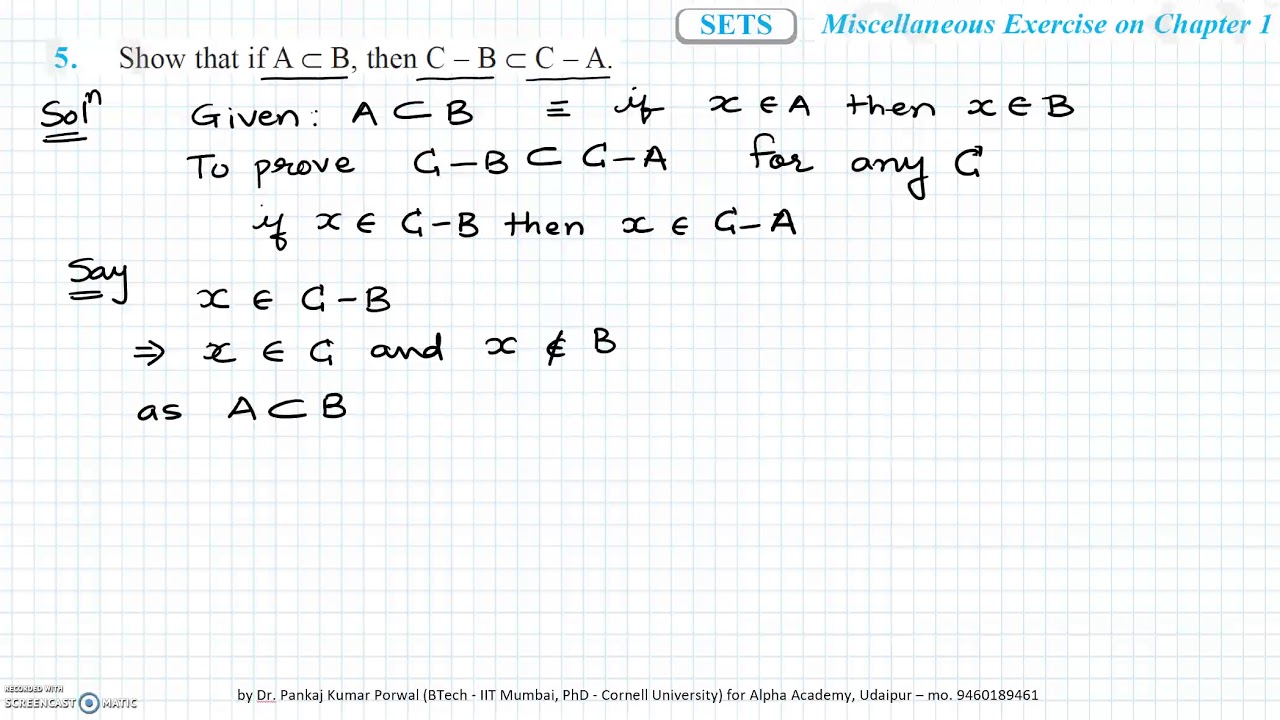 SETS Miscellaneous Exercise on Chapter 1
5. Show that if A ⊂ B, then C – B ⊂ C – A.
Solⁿ Given: A ⊂ B ≡ if x ∈ A then x ∈ B
To prove C – B ⊂ C – A for any C
if x ∈ C – B then x ∈ C – A
Say x ∈ C – B
⇒ x ∈ C and x ∉ B
as A ⊂ B
RECORDED WITH
SCREENCAST MATIC
by Dr. Pankaj Kumar Porwal (BTech - IIT Mumbai, PhD - Cornell University) for Alpha Academy, Udaipur – mo. 9460189461